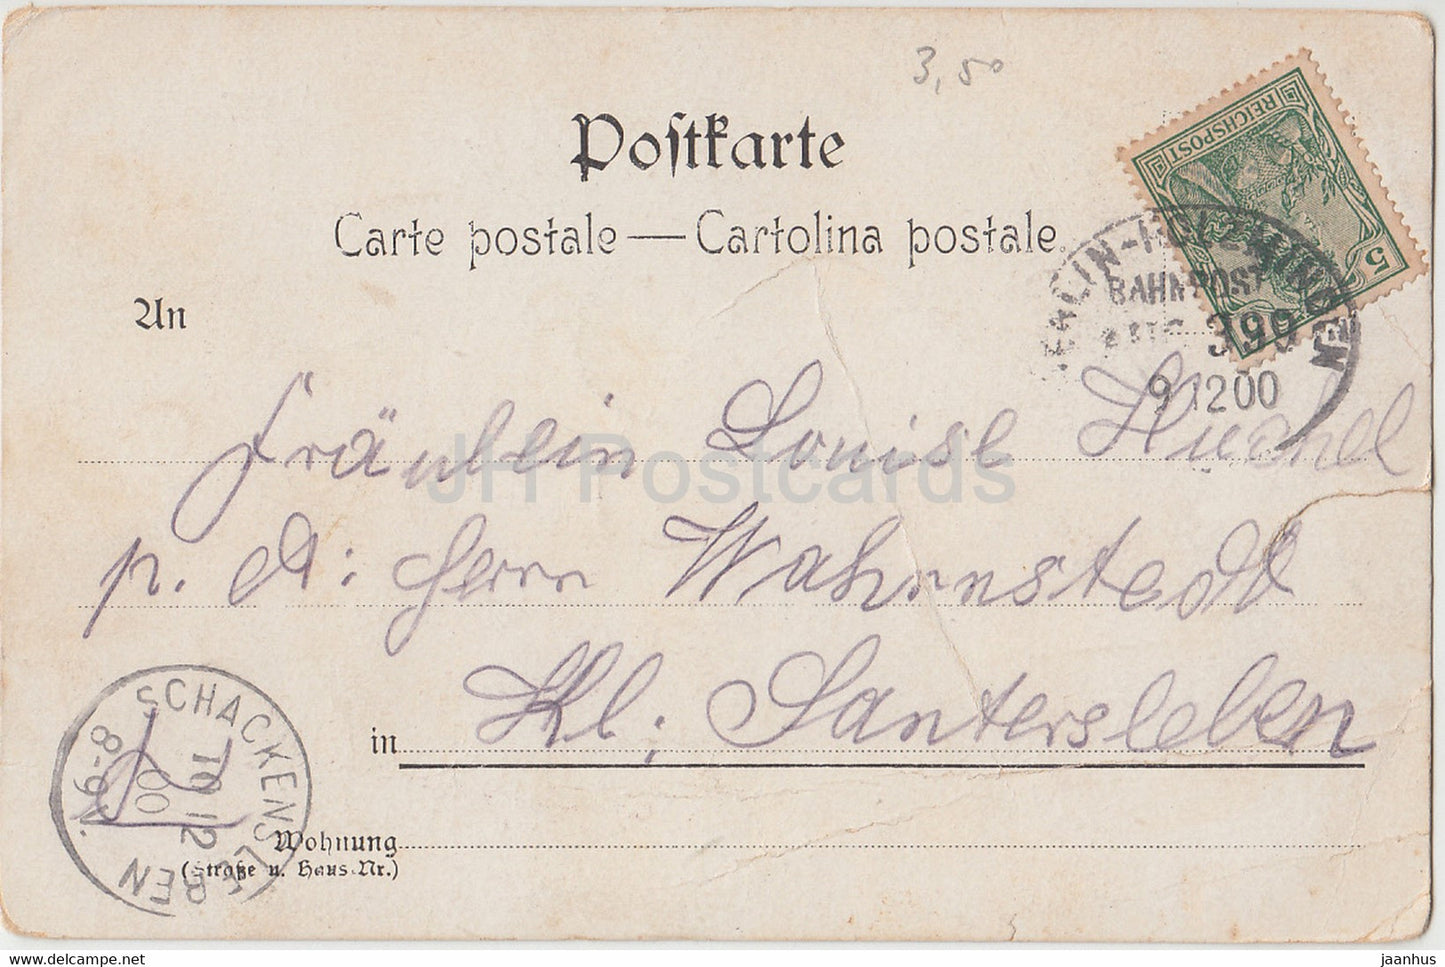 3,50
Postkarte
Carte postale — Cartolina postale.
REICHSPOST
5
BAHNPOST
399
9 12 00
An
Fräulein Louise
p. A: Herrn Wahrnstedt
in Kl. Santersleben
SCHACKENSLEBEN
10 12
00
8-9N.
Wohnung
(Straße u. Haus-Nr.)
JH Postcards
https://www.hippostcard.com/store/jhpostcards
jaanhus